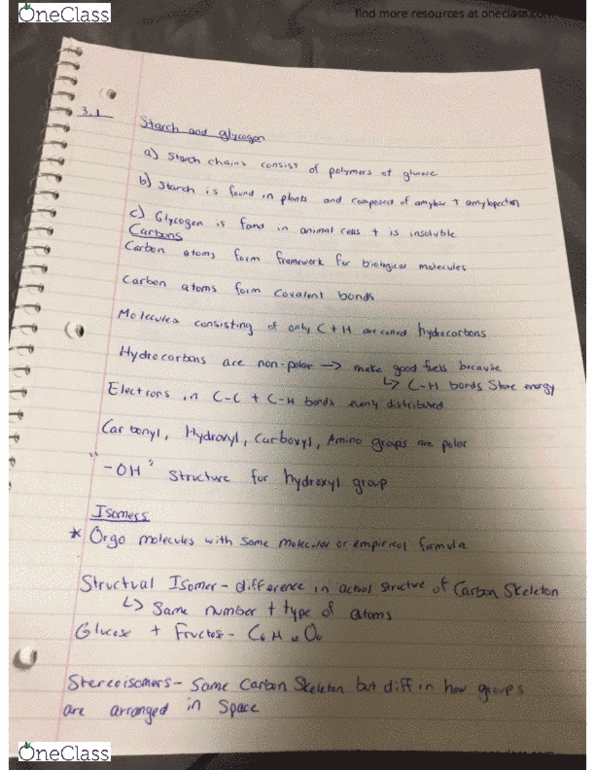 OneClass
find more resources at oneclass.com
3.1
Starch and glycogen
a) Starch chains consist of polymers of glucose
b) Starch is found in plants and composed of amylose + amylopectin
c) Glycogen is fand in animal cells + is insoluble
Carbons
Carbon atoms form framework for biological molecules
Carbon atoms form covalent bonds
Molecules consisting of only C + H are called hydrocarbons
Hydrocarbons are non-polar → make good fuels because
↳ C-H bonds Store energy
Electrons in C-C + C-H bonds evenly distributed
Carbonyl, Hydroxyl, Carboxyl, Amino groups are polar
"-OH" Structure for hydroxyl group
Isomers
* Orgo molecules with same molecular or empirical formula
Structual Isomer - difference in actual structure of Carbon Skeleton
↳ Same number + type of atoms
Glucose + Fructose - C6 H12 O6
Stereoisomers - Same Carbon Skeleton but diff in how groups
are arranged in Space
OneClass